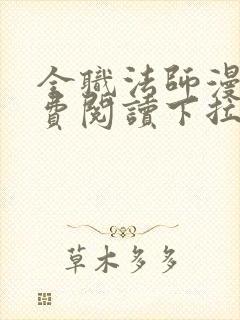 全職法師漫
費閱讀下拉
草木多多